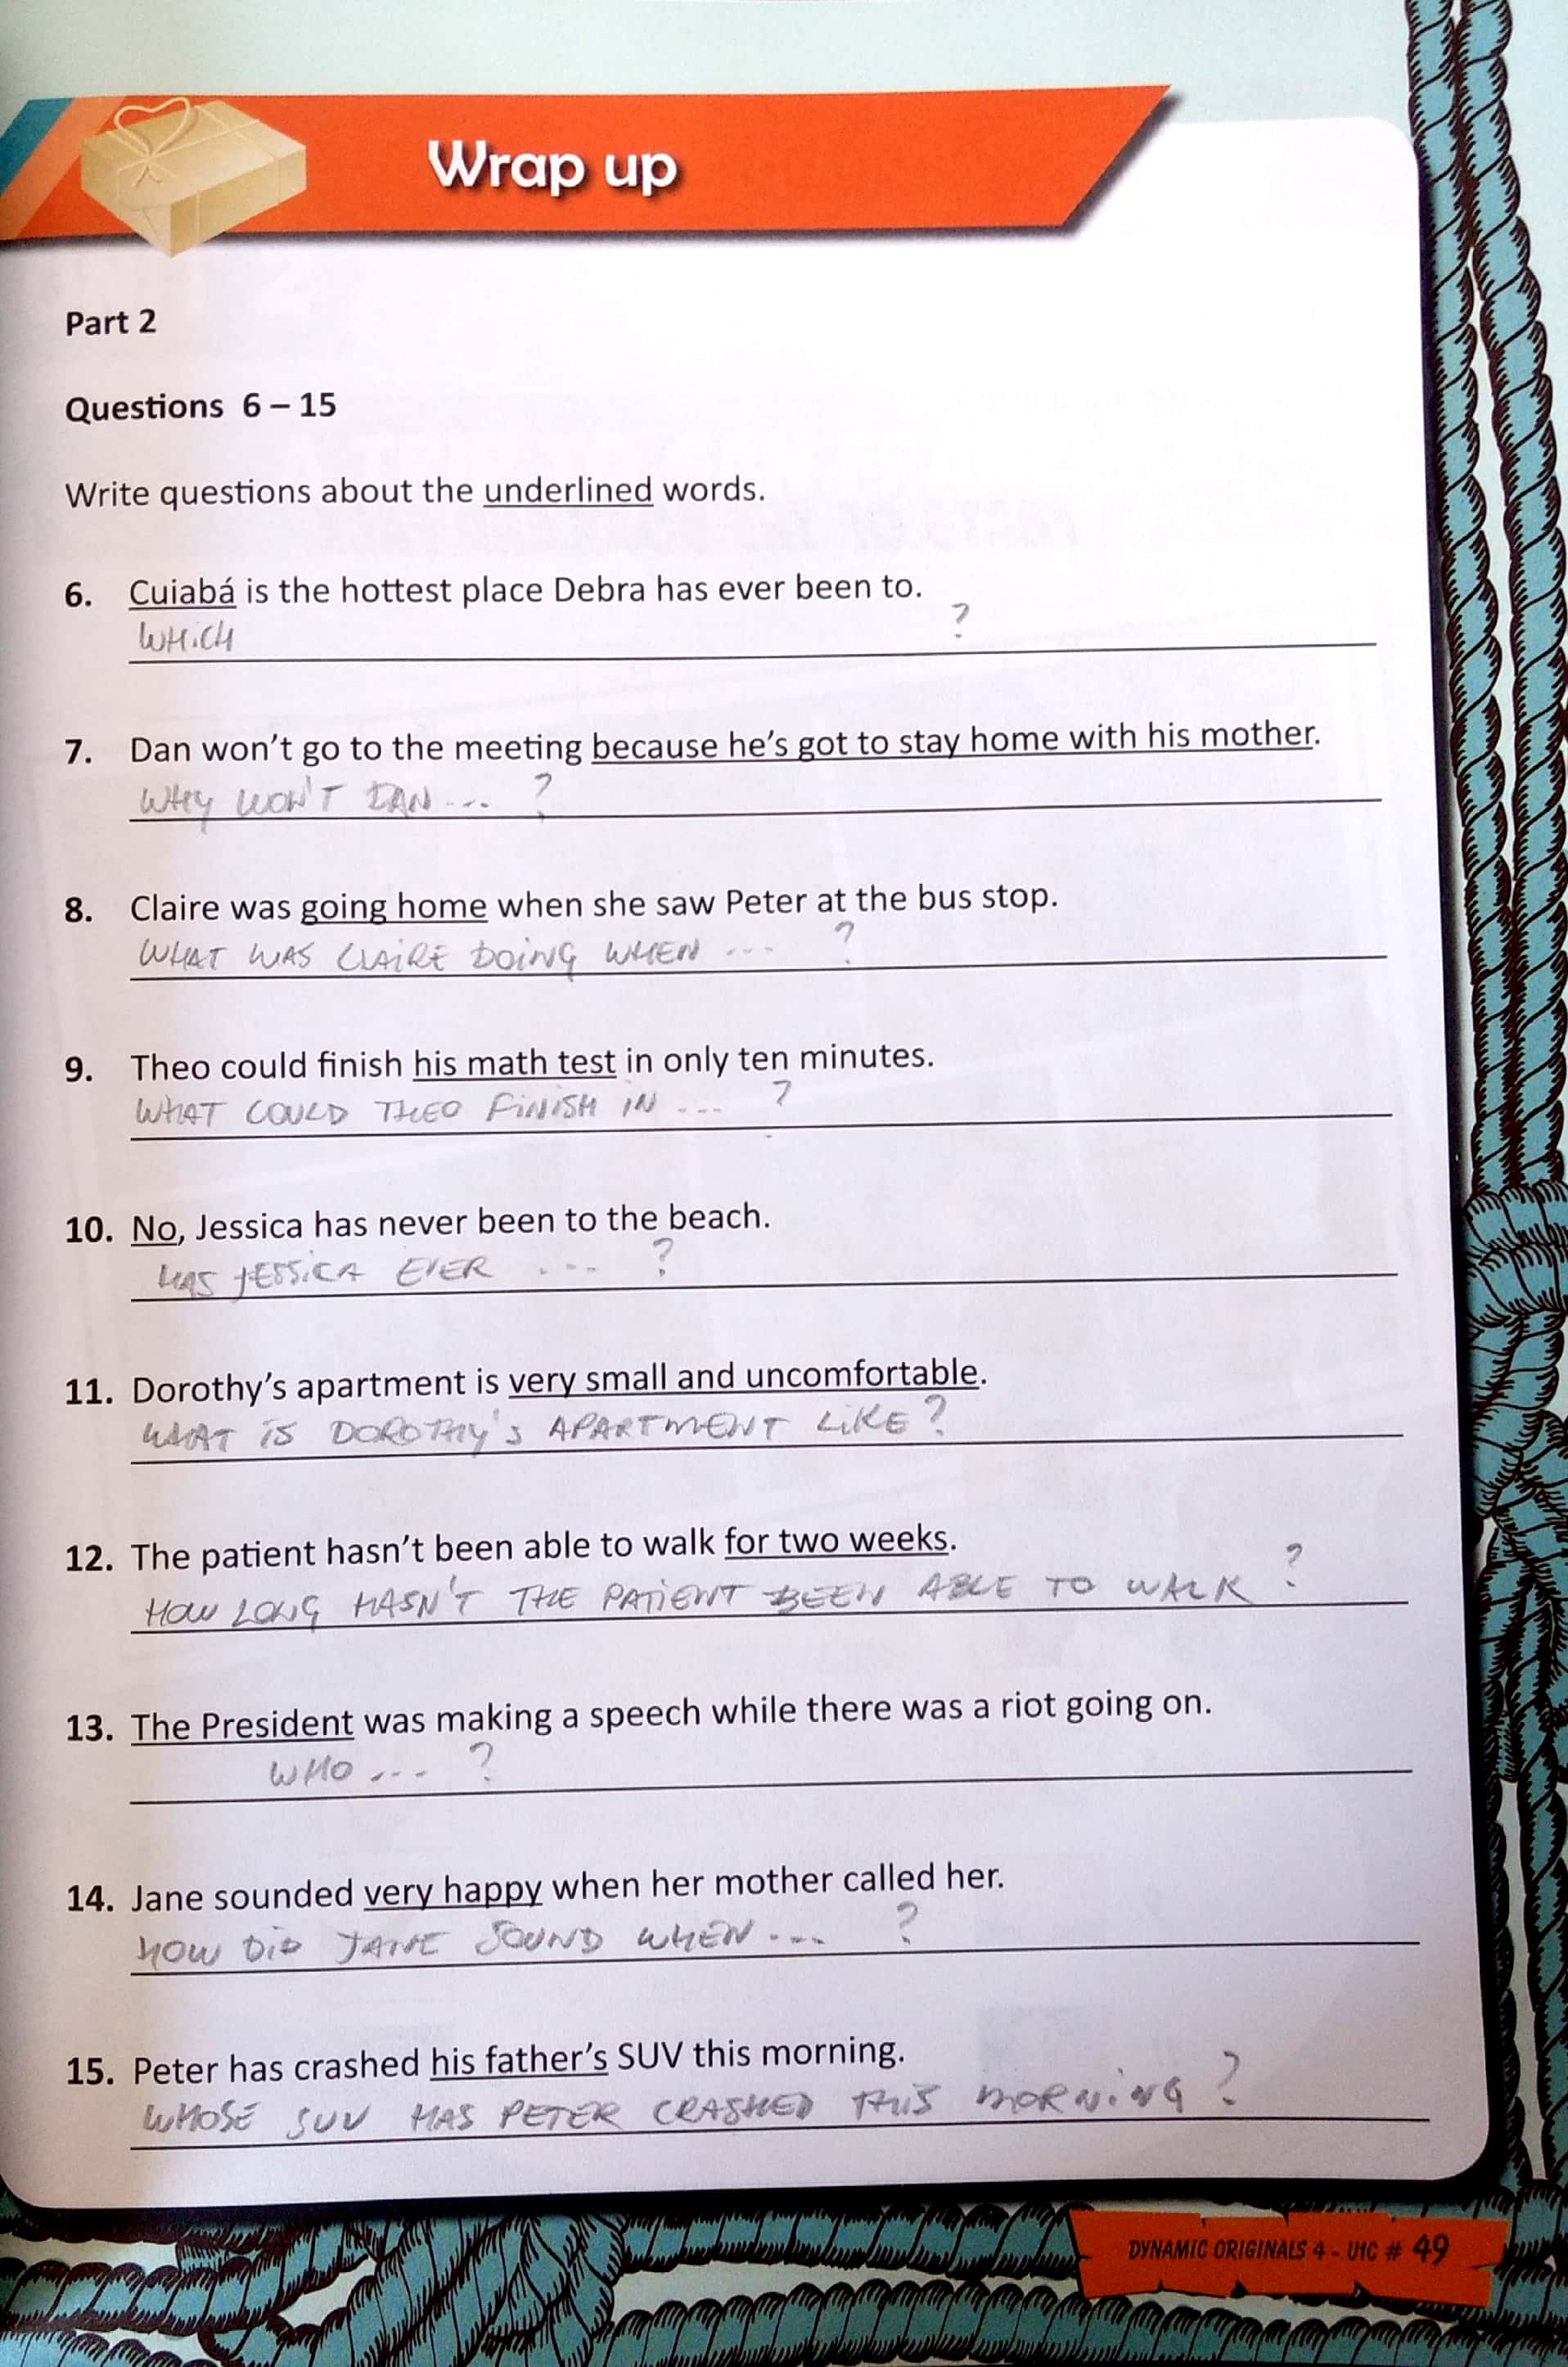 Wrap up
Part 2
Questions 6 – 15
Write questions about the underlined words.
6. Cuiabá is the hottest place Debra has ever been to.
WHICH ?
7. Dan won't go to the meeting because he's got to stay home with his mother.
WHY WON'T DAN ... ?
8. Claire was going home when she saw Peter at the bus stop.
WHAT WAS CLAIRE DOING WHEN ... ?
9. Theo could finish his math test in only ten minutes.
WHAT COULD THEO FINISH IN ... ?
10. No, Jessica has never been to the beach.
HAS JESSICA EVER ... ?
11. Dorothy's apartment is very small and uncomfortable.
WHAT IS DOROTHY'S APARTMENT LIKE?
12. The patient hasn't been able to walk for two weeks.
HOW LONG HASN'T THE PATIENT BEEN ABLE TO WALK ?
13. The President was making a speech while there was a riot going on.
WHO ... ?
14. Jane sounded very happy when her mother called her.
HOW DID JANE SOUND WHEN ... ?
15. Peter has crashed his father's SUV this morning.
WHOSE SUV HAS PETER CRASHED THIS MORNING ?
DYNAMIC ORIGINALS 4 - U1C # 49